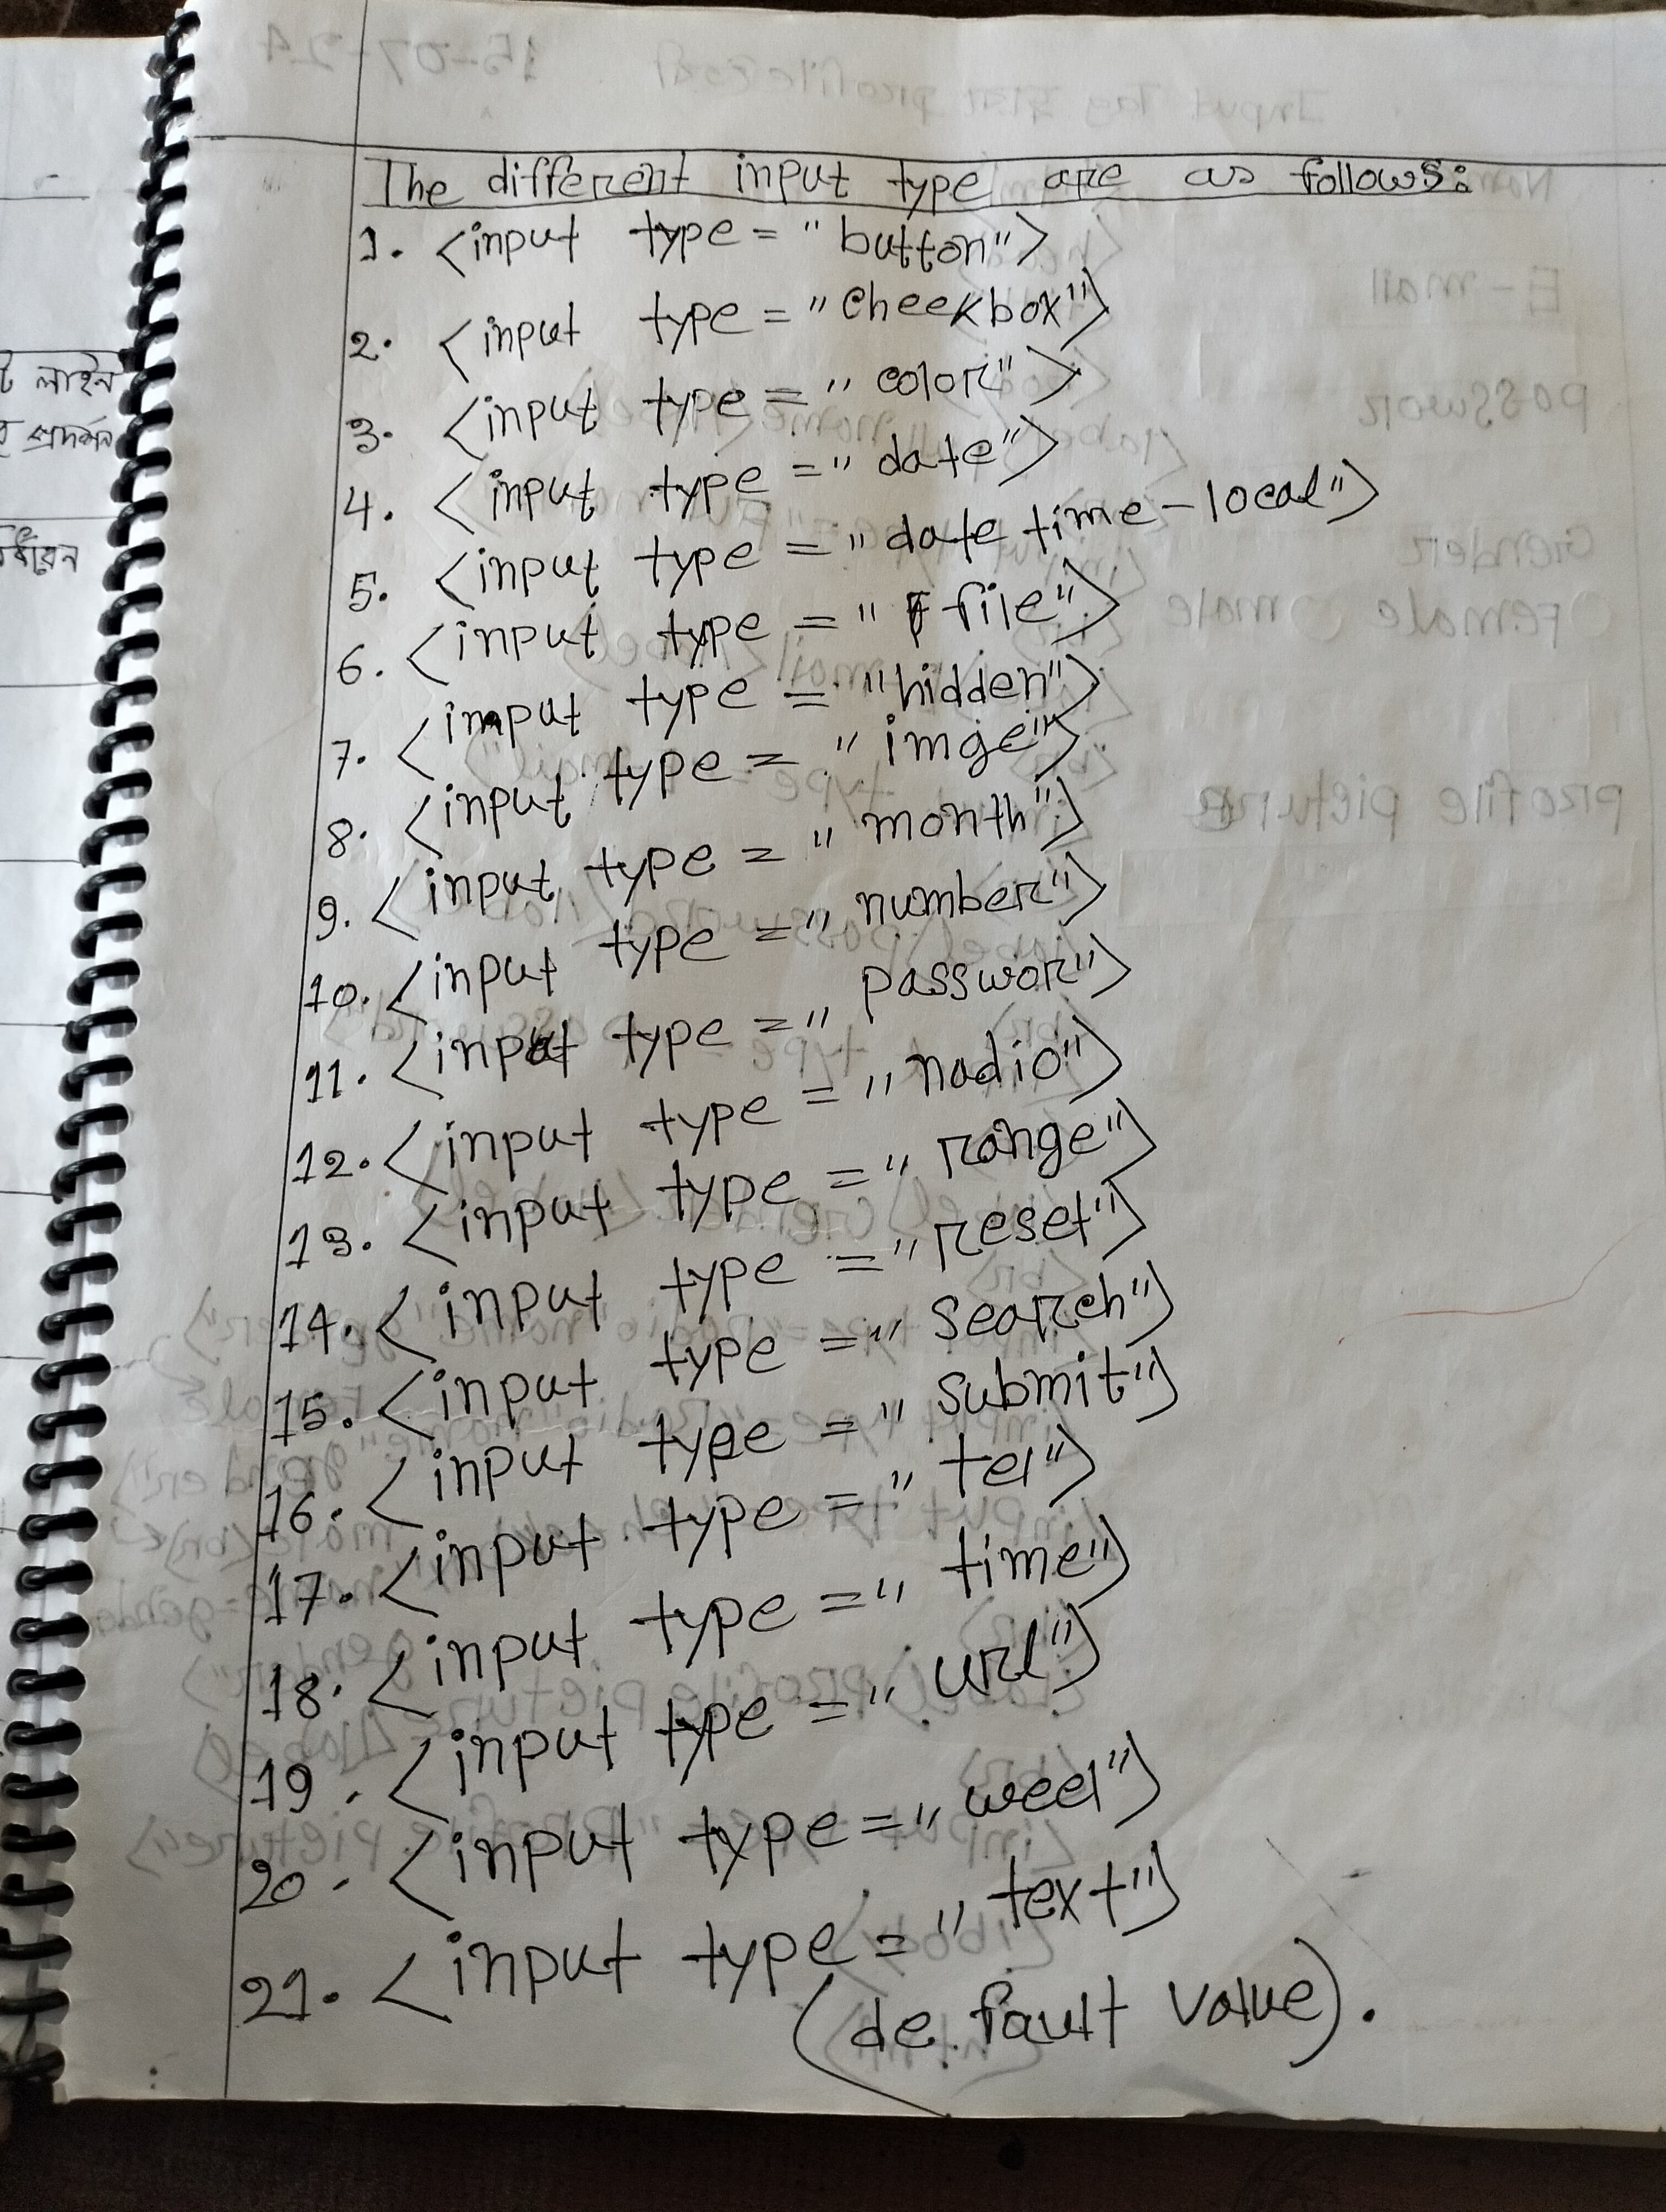 The different input type are as follows:
1. <input type = "button">
2. <input type = "checkbox">
3. <input type = "color">
4. <input type = "date">
5. <input type = "date time-local">
6. <input type = "file">
7. <input type = "hidden">
8. <input type = "imge">
9. <input type = "month">
10. <input type = "number">
11. <input type = "passwor">
12. <input type = "radio">
13. <input type = "range">
14. <input type = "reset">
15. <input type = "search">
16. <input type = "submit">
17. <input type = "tel">
18. <input type = "time">
19. <input type = "url">
20. <input type = "weel">
21. <input type = "text">
(de fault value).
লাইন